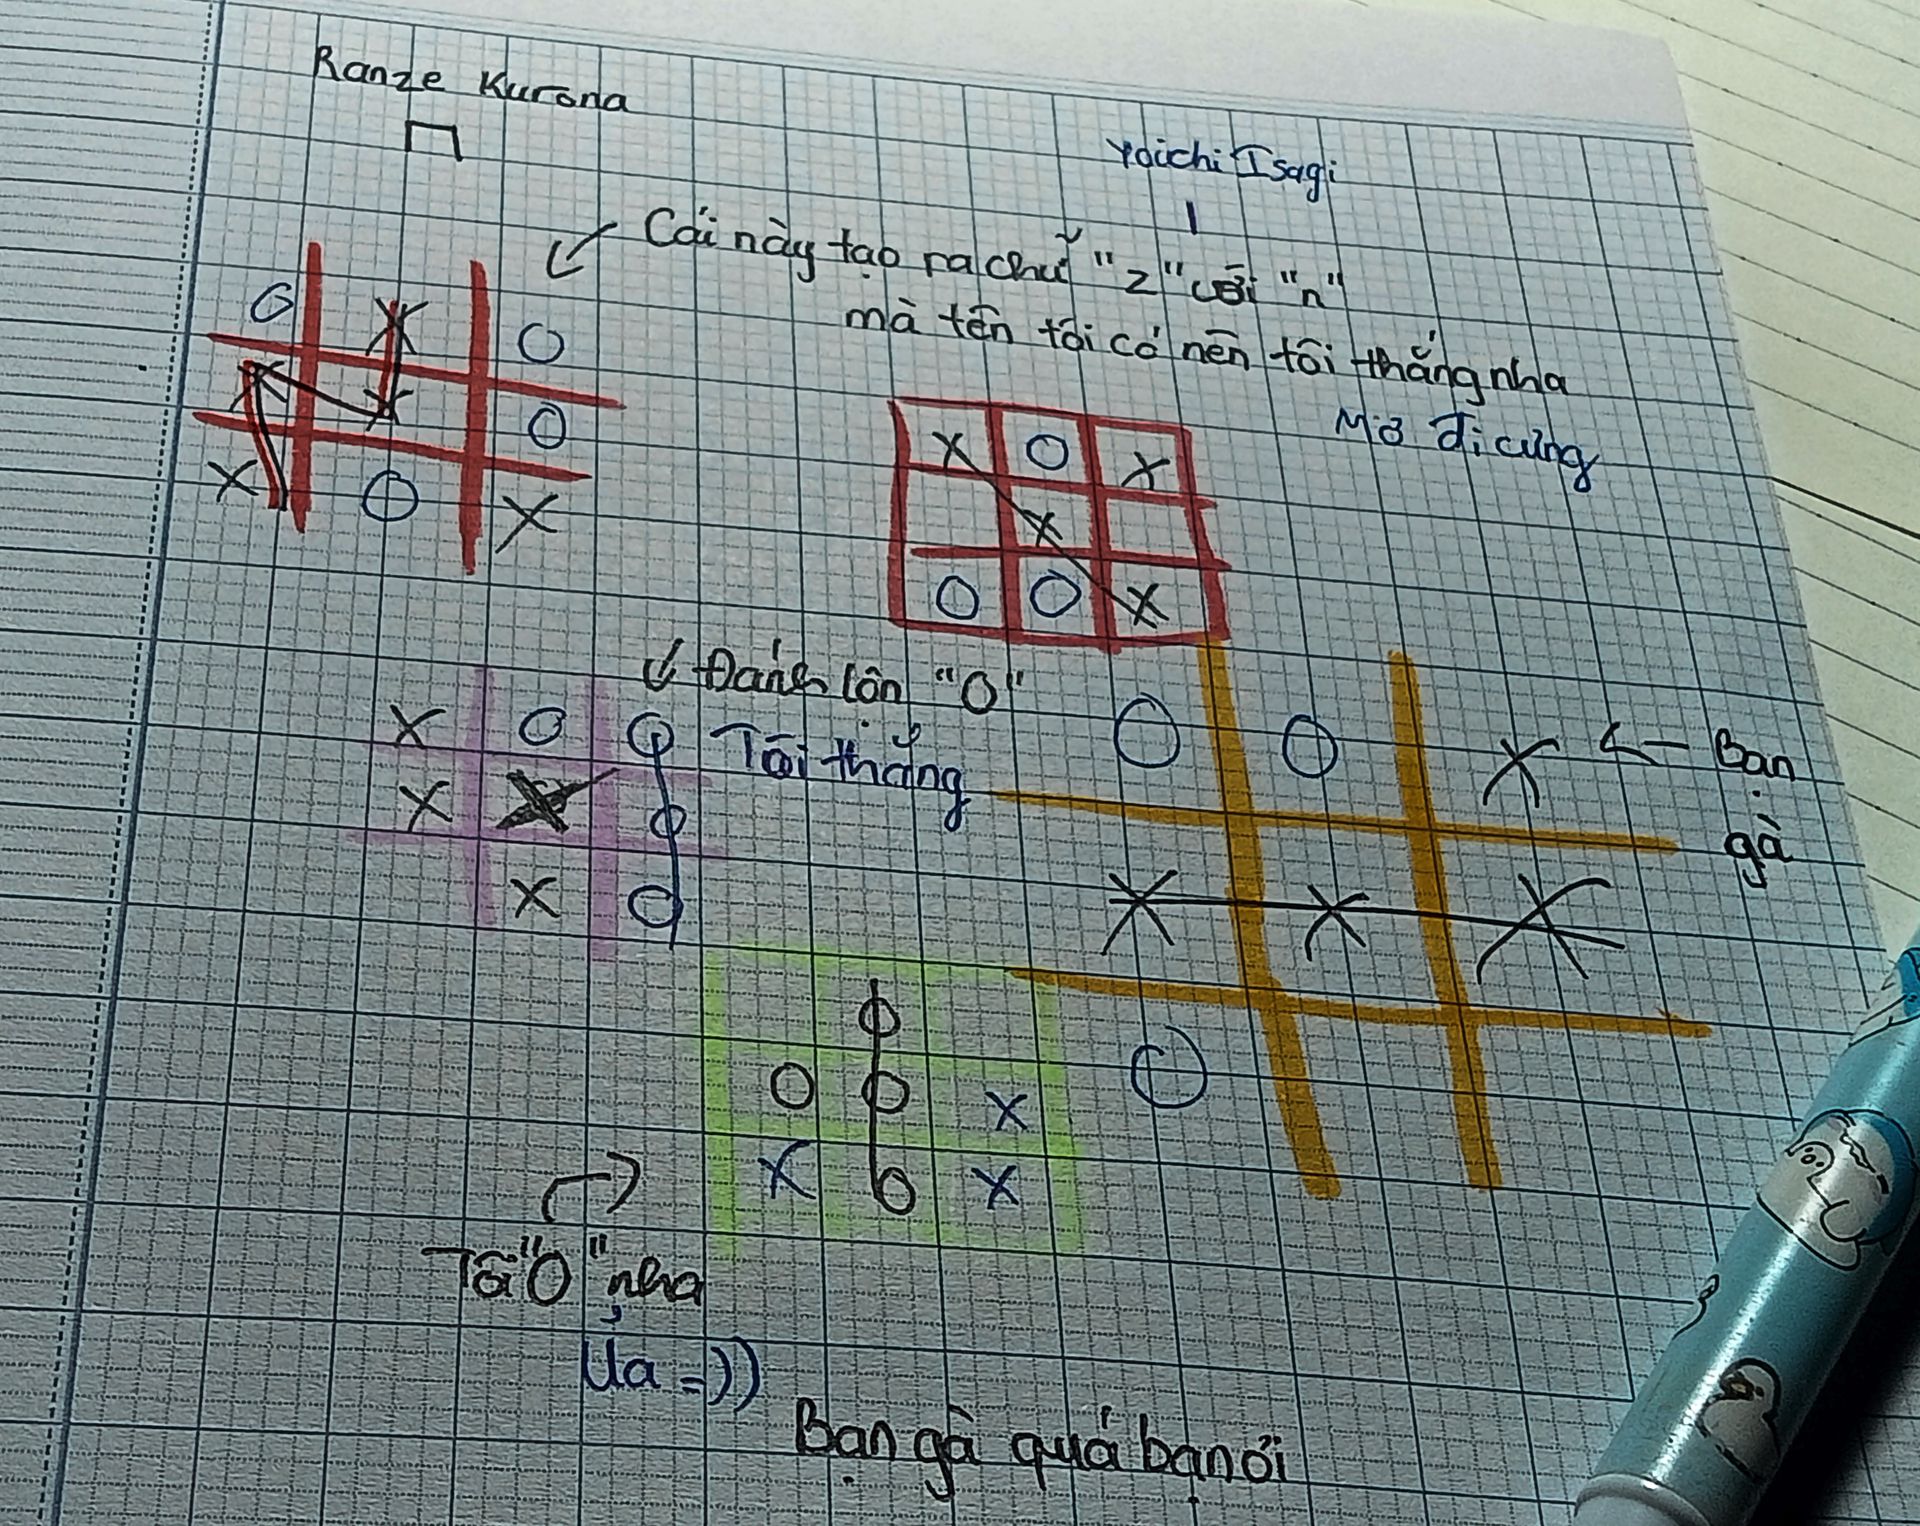 Ranze Kurona
Yoichi Isagi
Cái này tạo ra chữ "z" với "n"
mà tên tôi có nên tôi thắng nha
Mơ đi cưng
Đánh lộn "O"
Tôi thắng
Bạn
gà
Tôi "O" nha
Ủa =))
Bạn gà quá bạn ơi